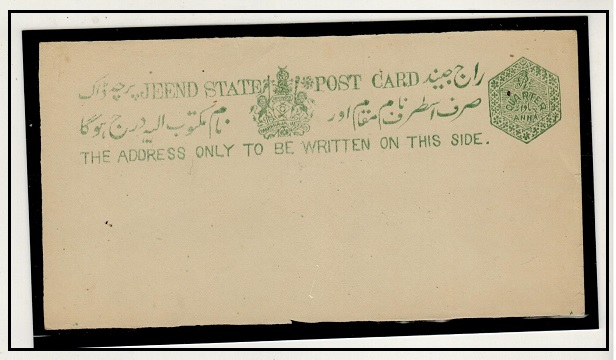 راج جیند POST CARD JEEND STATE پرچہ ڈاک
صرف اسطرف نام مقام اور نام مکتوب الیہ درج ہوگا
THE ADDRESS ONLY TO BE WRITTEN ON THIS SIDE.
QUARTER
ANNA